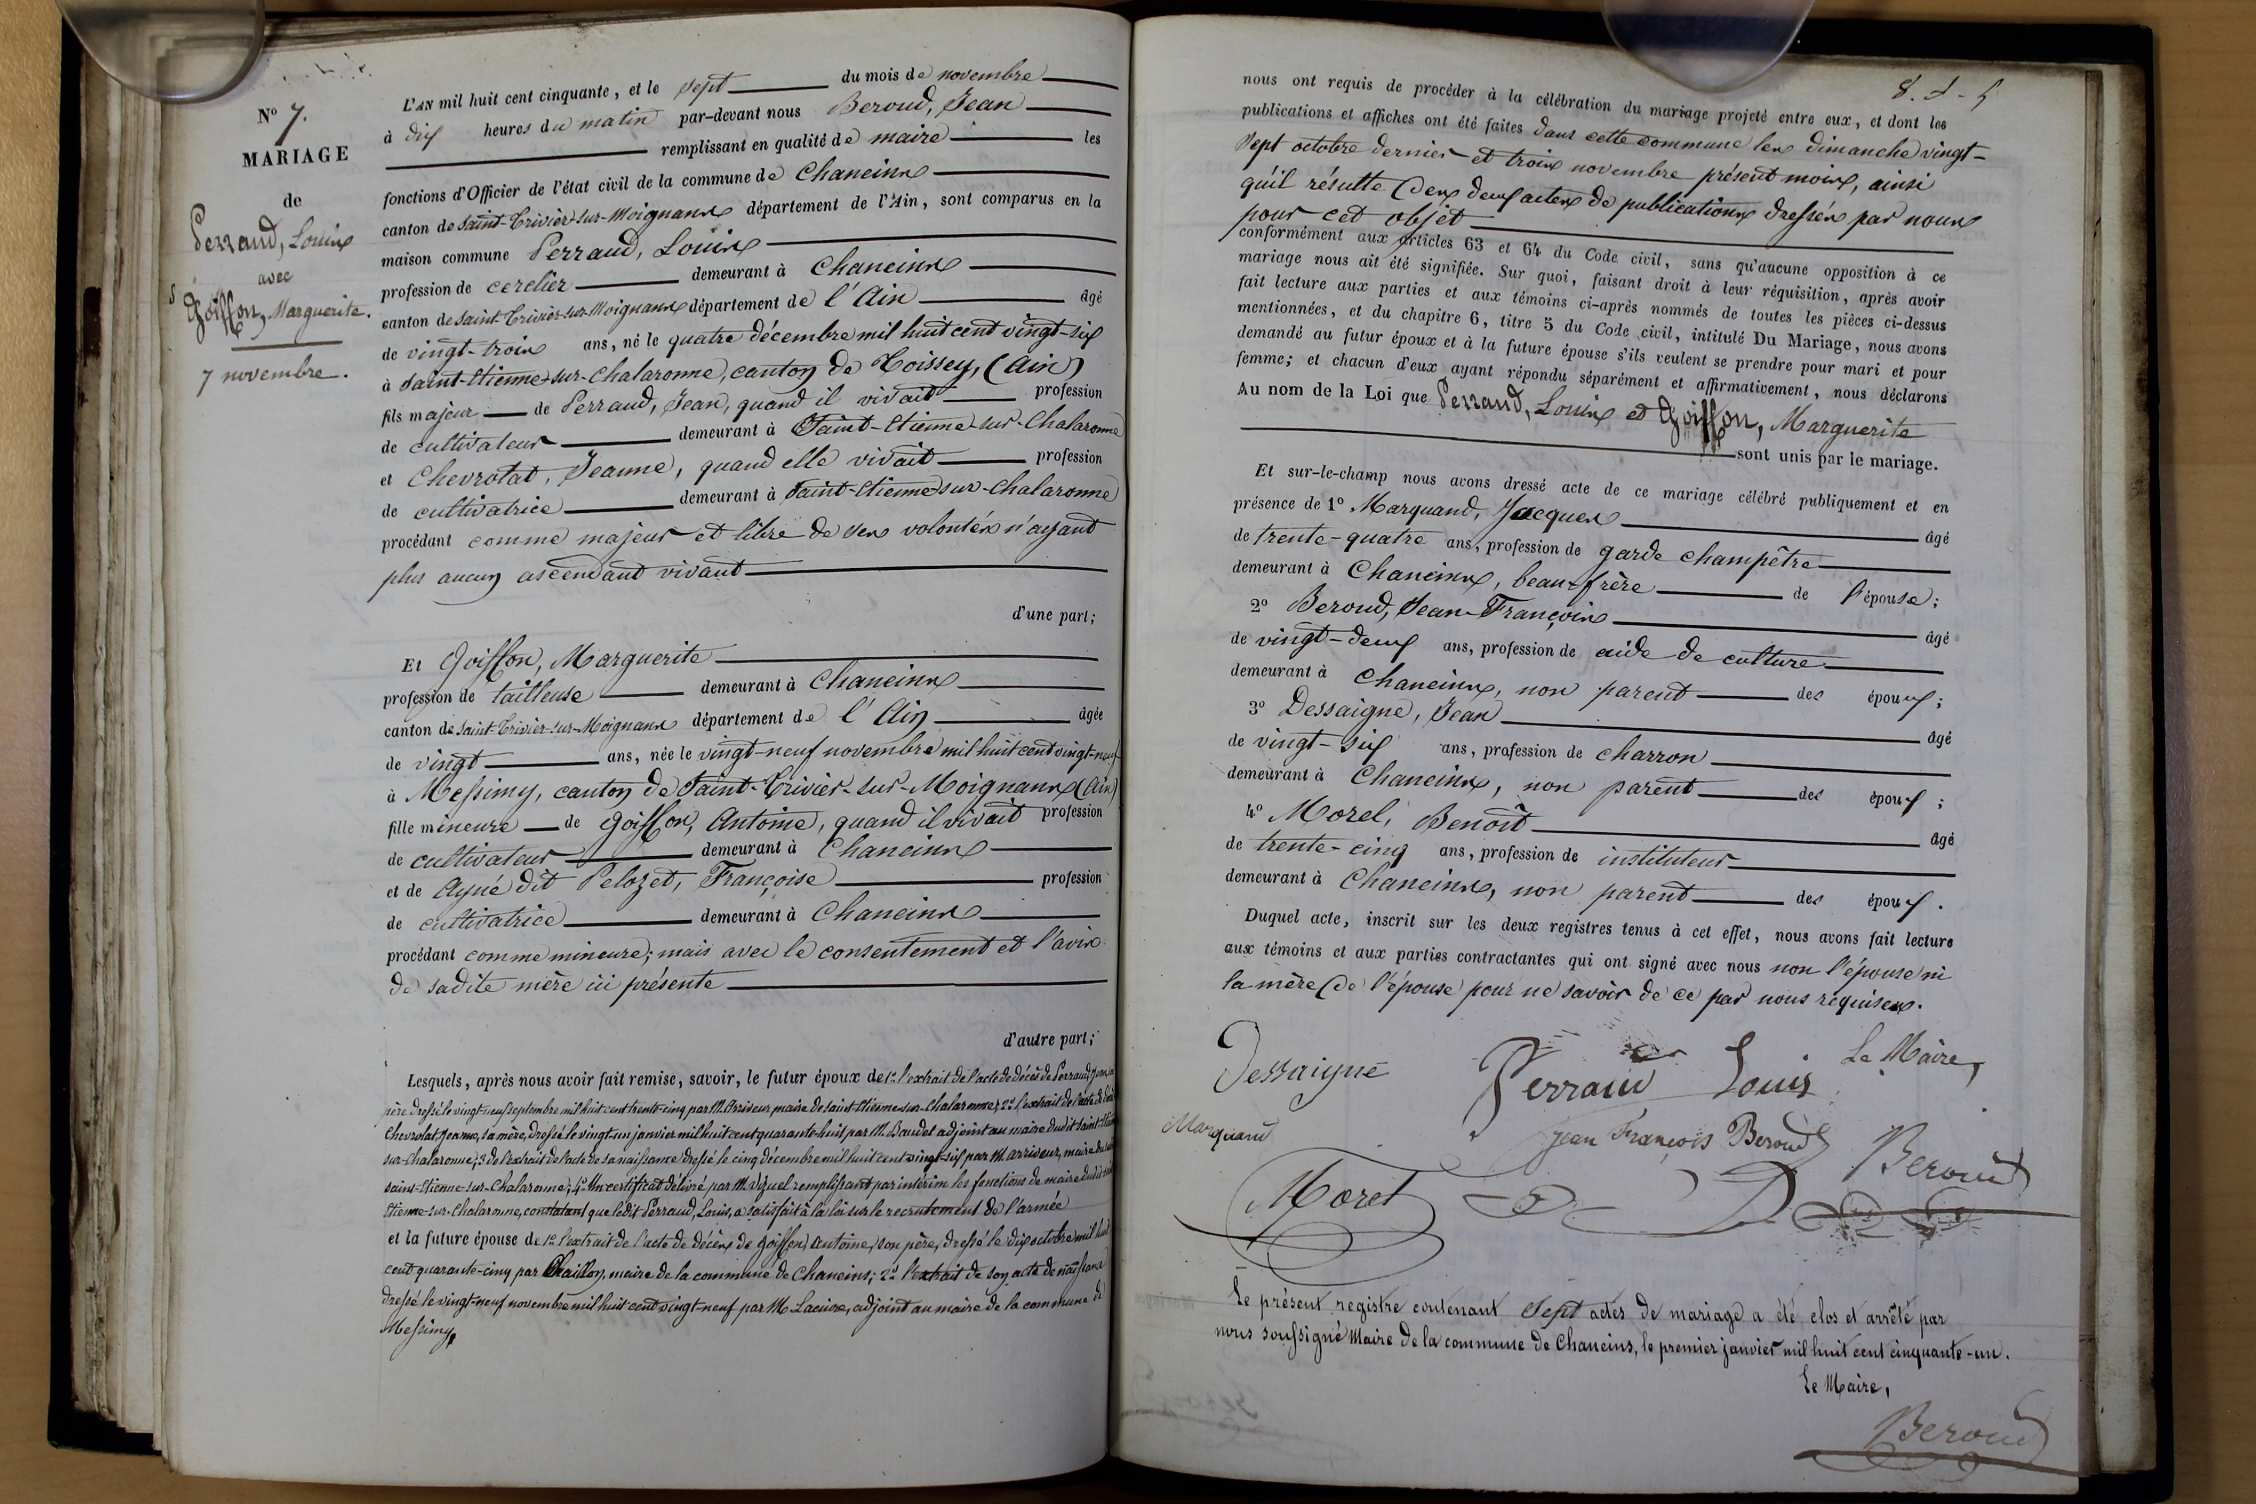 N° 7.
MARIAGE
de
Perraud, Louis
avec
Goiffon, Marguerite.
7 novembre.
L'AN mil huit cent cinquante, et le sept du mois de novembre
à dix heures du matin par-devant nous Beroud, Jean
remplissant en qualité de maire les
fonctions d'Officier de l'état civil de la commune de Chaneins
canton de Saint-Trivier-sur-Moignans département de l'Ain, sont comparus en la
maison commune Perraud, Louis
profession de cerclier demeurant à Chaneins
canton de Saint-Trivier-sur-Moignans département de l'Ain âgé
de vingt-trois ans, né le quatre décembre mil huit cent vingt-six
à Saint-Etienne-sur-Chalaronne, canton de Thoissey, (Ain)
fils majeur de Perraud, Jean, quand il vivait profession
de cultivateur demeurant à Saint-Etienne-sur-Chalaronne
et Chevrolat, Jeanne, quand elle vivait profession
de cultivatrice demeurant à Saint-Etienne-sur-Chalaronne
procédant comme majeur et libre de ses volontés n'ayant
plus aucun ascendant vivant
d'une part;
Et Goiffon, Marguerite
profession de tailleuse demeurant à Chaneins
canton de Saint-Trivier-sur-Moignans département de l'Ain âgée
de vingt ans, née le vingt-neuf novembre mil huit cent vingt-neuf
à Messimy, canton de Saint-Trivier-sur-Moignans (Ain)
fille mineure de Goiffon, Antoine, quand il vivait profession
de cultivateur demeurant à Chaneins
et de Ayné dit Pelozet, Françoise profession
de cultivatrice demeurant à Chaneins
procédant comme mineure; mais avec le consentement et l'avis
de sadite mère ici présente
d'autre part;
Lesquels, après nous avoir fait remise, savoir, le futur époux de 1° l'extrait de l'acte de décès de Perraud, Jean, son
père dressé le vingt-neuf septembre mil huit cent trente-cinq par M. Arriveur maire de Saint-Etienne-sur-Chalaronne; 2° l'extrait de l'acte de décès
Chevrolat, Jeanne, sa mère, dressé le vingt-un janvier mil huit cent quarante-huit par M. Baudet adjoint au maire dudit Saint-Etienne
sur-Chalaronne; 3° de l'extrait de l'acte de sa naissance dressé le cinq décembre mil huit cent vingt-six par M. Arriveur, maire dudit
Saint-Etienne-sur-Chalaronne; 4° Un certificat délivré par M. remplissant par intérim les fonctions de maire dudit Saint
Etienne-sur-Chalaronne, constatant que ledit Perraud, Louis, a satisfait à la loi sur le recrutement de l'armée
et la future épouse de 1° l'extrait de l'acte de décès de Goiffon, Antoine, son père, dressé le dix octobre mil huit
cent quarante-cinq par Chaillon, maire de la commune de Chaneins; 2° l'extrait de son acte de naissance
dressé le vingt-neuf novembre mil huit cent vingt-neuf par M. Lacuire, adjoint au maire de la commune de
Messimy,
nous ont requis de procéder à la célébration du mariage projeté entre eux, et dont les
publications et affiches ont été faites dans cette commune les dimanche vingt-
sept octobre dernier et trois novembre présent mois, ainsi
qu'il résulte des deux actes de publications dressés par nous
pour cet objet
conformément aux articles 63 et 64 du Code civil, sans qu'aucune opposition à ce
mariage nous ait été signifiée. Sur quoi, faisant droit à leur réquisition, après avoir
fait lecture aux parties et aux témoins ci-après nommés de toutes les pièces ci-dessus
mentionnées, et du chapitre 6, titre 5 du Code civil, intitulé Du Mariage, nous avons
demandé au futur époux et à la future épouse s'ils veulent se prendre pour mari et pour
femme; et chacun d'eux ayant répondu séparément et affirmativement, nous déclarons
Au nom de la Loi que Perraud, Louis et Goiffon, Marguerite
sont unis par le mariage.
Et sur-le-champ nous avons dressé acte de ce mariage célébré publiquement et en
présence de 1° Marquand, Jacques âgé
de trente-quatre ans, profession de garde champêtre
demeurant à Chaneins, beau-frère de l'épouse;
2° Beroud, Jean-François âgé
de vingt-deux ans, profession de aide de culture
demeurant à Chaneins, non parent des époux;
3° Dessaigne, Jean âgé
de vingt-six ans, profession de charron
demeurant à Chaneins, non parent des époux;
4° Morel, Benoît âgé
de trente-cinq ans, profession de instituteur
demeurant à Chaneins, non parent des époux.
Duquel acte, inscrit sur les deux registres tenus à cet effet, nous avons fait lecture
aux témoins et aux parties contractantes qui ont signé avec nous non l'épouse ni
la mère de l'épouse pour ne savoir de ce par nous requises.
Dessaigne Perraud Louis Le Maire,
Marquand Jean François Beroud Beroud
Morel
Le présent registre contenant sept actes de mariage a été clos et arrêté par
nous soussigné Maire de la commune de Chaneins, le premier janvier mil huit cent cinquante-un.
Le Maire,
Beroud